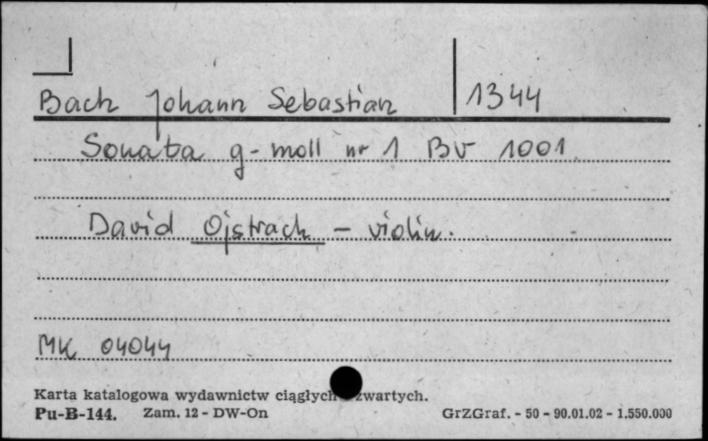 Bach Johann Sebastian 1344
Sonata g-moll nr 1 BV 1001
David Ojstrach - violin.
MK 04044
Karta katalogowa wydawnictw ciągłych zwartych.
Pu-B-144. Zam. 12 - DW-On GrZGraf. - 50 - 90.01.02 - 1.550.000